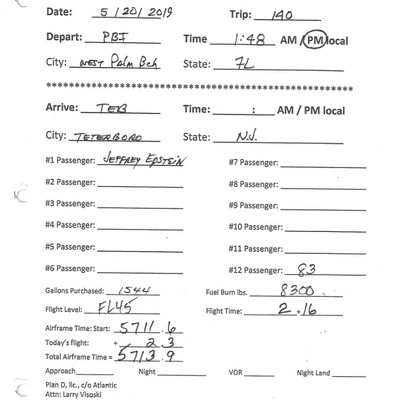 Date: 5/20/2019 Trip: 140
Depart: PBI Time 1:48 AM / PM local
City: West Palm Bch State: FL
******************************************
Arrive: TEB Time: : AM / PM local
City: TETERBORO State: N.J.
#1 Passenger: JEFFREY EPSTEIN #7 Passenger:
#2 Passenger: #8 Passenger:
#3 Passenger: #9 Passenger:
#4 Passenger: #10 Passenger:
#5 Passenger: #11 Passenger:
#6 Passenger: #12 Passenger: 83
Gallons Purchased: 1544 Fuel Burn lbs. 8300
Flight Level: FL45 Flight Time: 2+16
Airframe Time: Start: 5711.6
Today's flight: + 2.3
Total Airframe Time = 5713.9
Approach Night VOR Night Land
Plan D, llc., c/o Atlantic
Attn: Larry Visoski